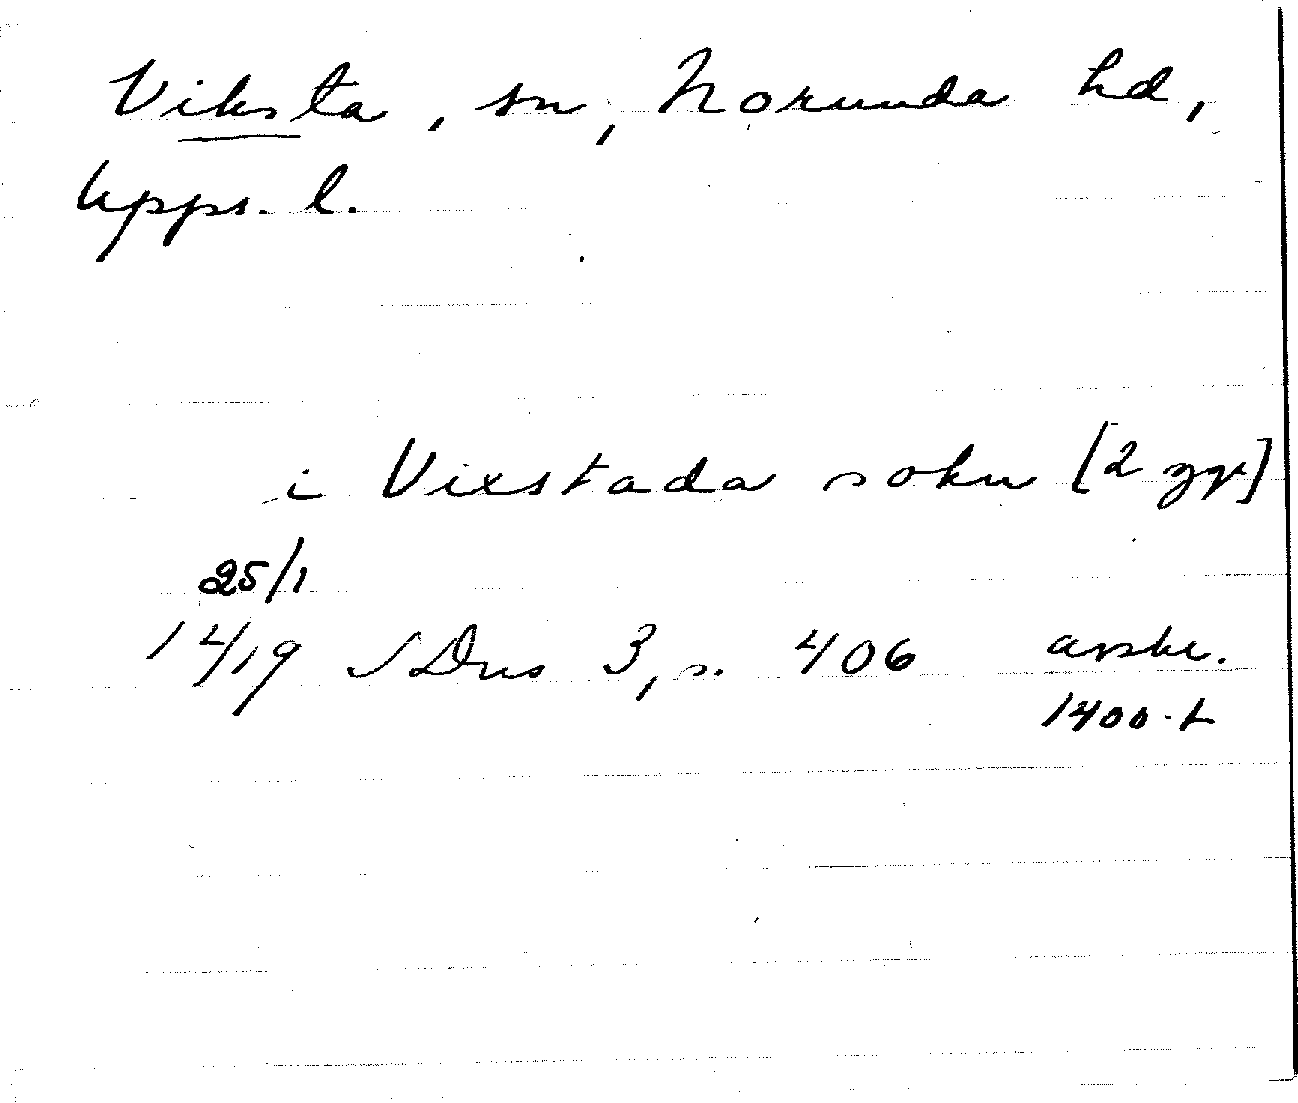 Viksta, sn, Norunda hd,
Upps. l.
i Vixstada sokn [2 ggr]
25/1
1419 SDns 3, s. 406 avskr.
1400-t